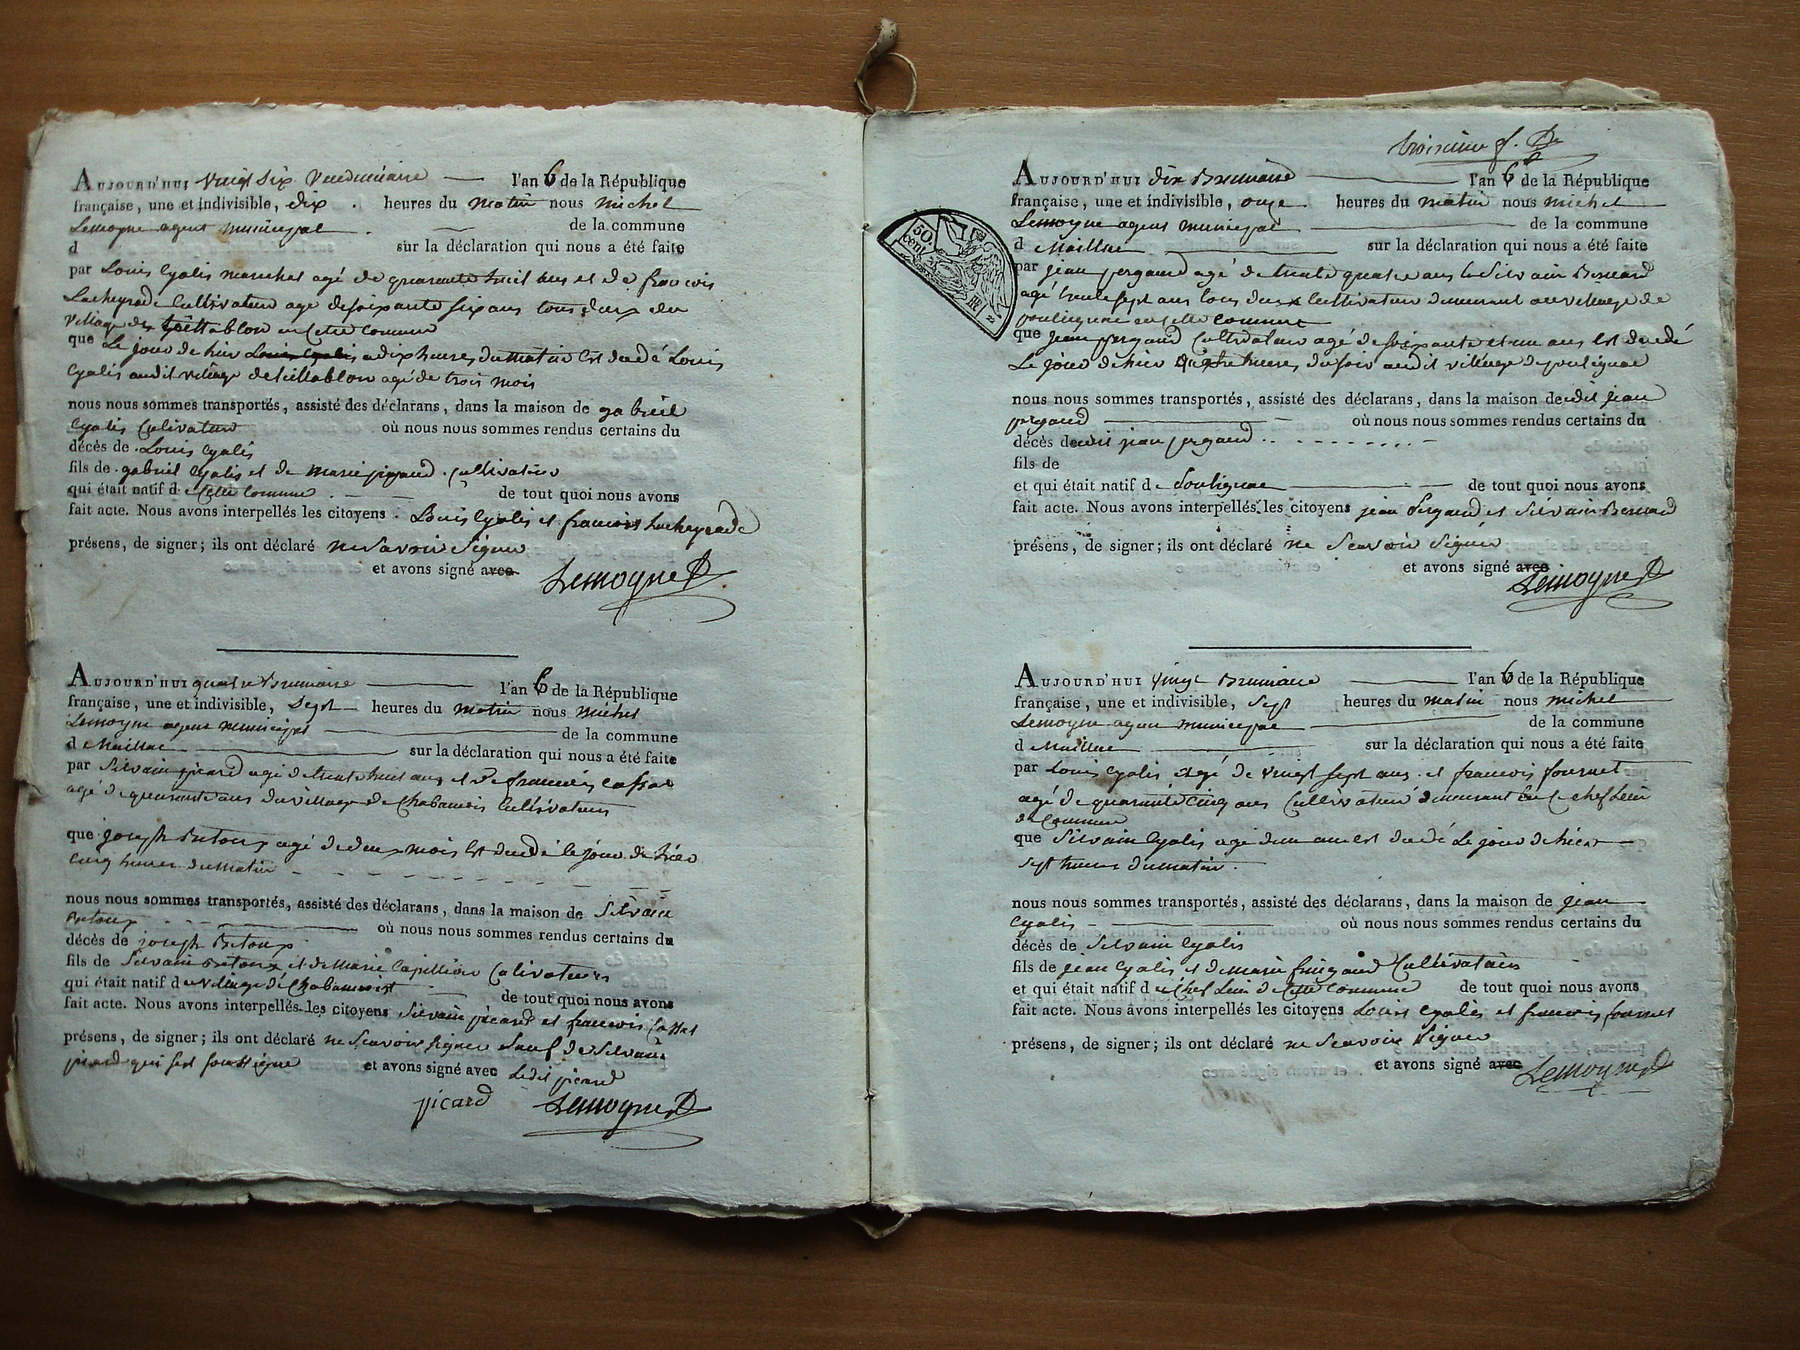 Aujourd'hui vingt six Vendemiaire l'an 6 de la République
française, une et indivisible, dix heures du matin nous michel
Lemoyne agent municipal de la commune
d sur la déclaration qui nous a été faite
par Louis Cyalis agé de quarante huit ans et de francois
Lacheyrade Cultivateur age de soixante six ans tous deux du
village de en Cette Commune
que Le jour de hier a dix heures du matin Est decedé Louis
Cyalis audit village de agé de trois mois
nous nous sommes transportés, assisté des déclarans, dans la maison de gabriel
Cyalis Cultivateur où nous nous sommes rendus certains du
décès de Louis Cyalis
fils de gabriel Cyalis et de marie Cultivateurs
qui était natif de Cette Commune de tout quoi nous avons
fait acte. Nous avons interpellés les citoyens Louis Cyalis et francois Lacheyrade
présens, de signer; ils ont déclaré ne Savoir Signer
et avons signé avec Lemoyne
Aujourd'hui quatre Brumaire l'an 6 de la République
française, une et indivisible, Sept heures du matin nous michel
Lemoyne agent municipal de la commune
d Maillac sur la déclaration qui nous a été faite
par Silvain picard agé de trente huit ans et de francois
agé de quarante ans du village de Cultivateurs
que joseph Betoux agé de deux mois Est decedé le jour de hier
cinq heures du matin
nous nous sommes transportés, assisté des déclarans, dans la maison de Silvain
Betoux où nous nous sommes rendus certains du
décès de joseph Betoux
fils de Silvain Betoux et de Marie Cultivateurs
qui était natif du village de de tout quoi nous avons
fait acte. Nous avons interpellés les citoyens Silvain picard et francois
présens, de signer; ils ont déclaré ne Scavoir signer Sauf de Silvain
picard qui sest soussigne et avons signé avec Ledit picard
picard Lemoyne
troisieme f.
Aujourd'hui dix Brumaire l'an 6 de la République
française, une et indivisible, onze heures du matin nous michel
Lemoyne agent municipal de la commune
d Maillac sur la déclaration qui nous a été faite
par jean agé de trente quatre ans Silvain Bernard
agé trente sept ans tous deux Cultivateur demeurant au village de
en cette commune
que jean Cultivateur agé de soixante et un ans Est decedé
Le jour de hier heures du soir audit village de
nous nous sommes transportés, assisté des déclarans, dans la maison dedit jean
où nous nous sommes rendus certains du
décès dudit jean
fils de
et qui était natif de de tout quoi nous avons
fait acte. Nous avons interpellés les citoyens jean et Silvain Bernard
présens, de signer; ils ont déclaré ne Scavoir Signer
et avons signé avec
Lemoyne
50
cent
Aujourd'hui vingt Brumaire l'an 6 de la République
française, une et indivisible, Sept heures du matin nous michel
Lemoyne agent municipal de la commune
d Maillac sur la déclaration qui nous a été faite
par Louis Cyalis agé de vingt sept ans et francois fournet
agé de quarante cinq ans Cultivateur demeurant Chef Lieu
de Commune
que Silvain Cyalis agé dun an est decedé Le jour de hier
sept heures du matin
nous nous sommes transportés, assisté des déclarans, dans la maison de jean
Cyalis où nous nous sommes rendus certains du
décès de Silvain Cyalis
fils de jean Cyalis et de marie Cultivateurs
et qui était natif de Chef Lieu de Cette Commune de tout quoi nous avons
fait acte. Nous avons interpellés les citoyens Louis Cyalis et francois fournet
présens, de signer; ils ont déclaré ne Scavoir Signer
et avons signé avec Lemoyne